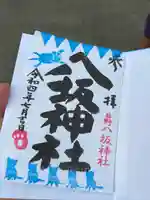 拝
八坂神社
八坂神社
令和四年七月吉日